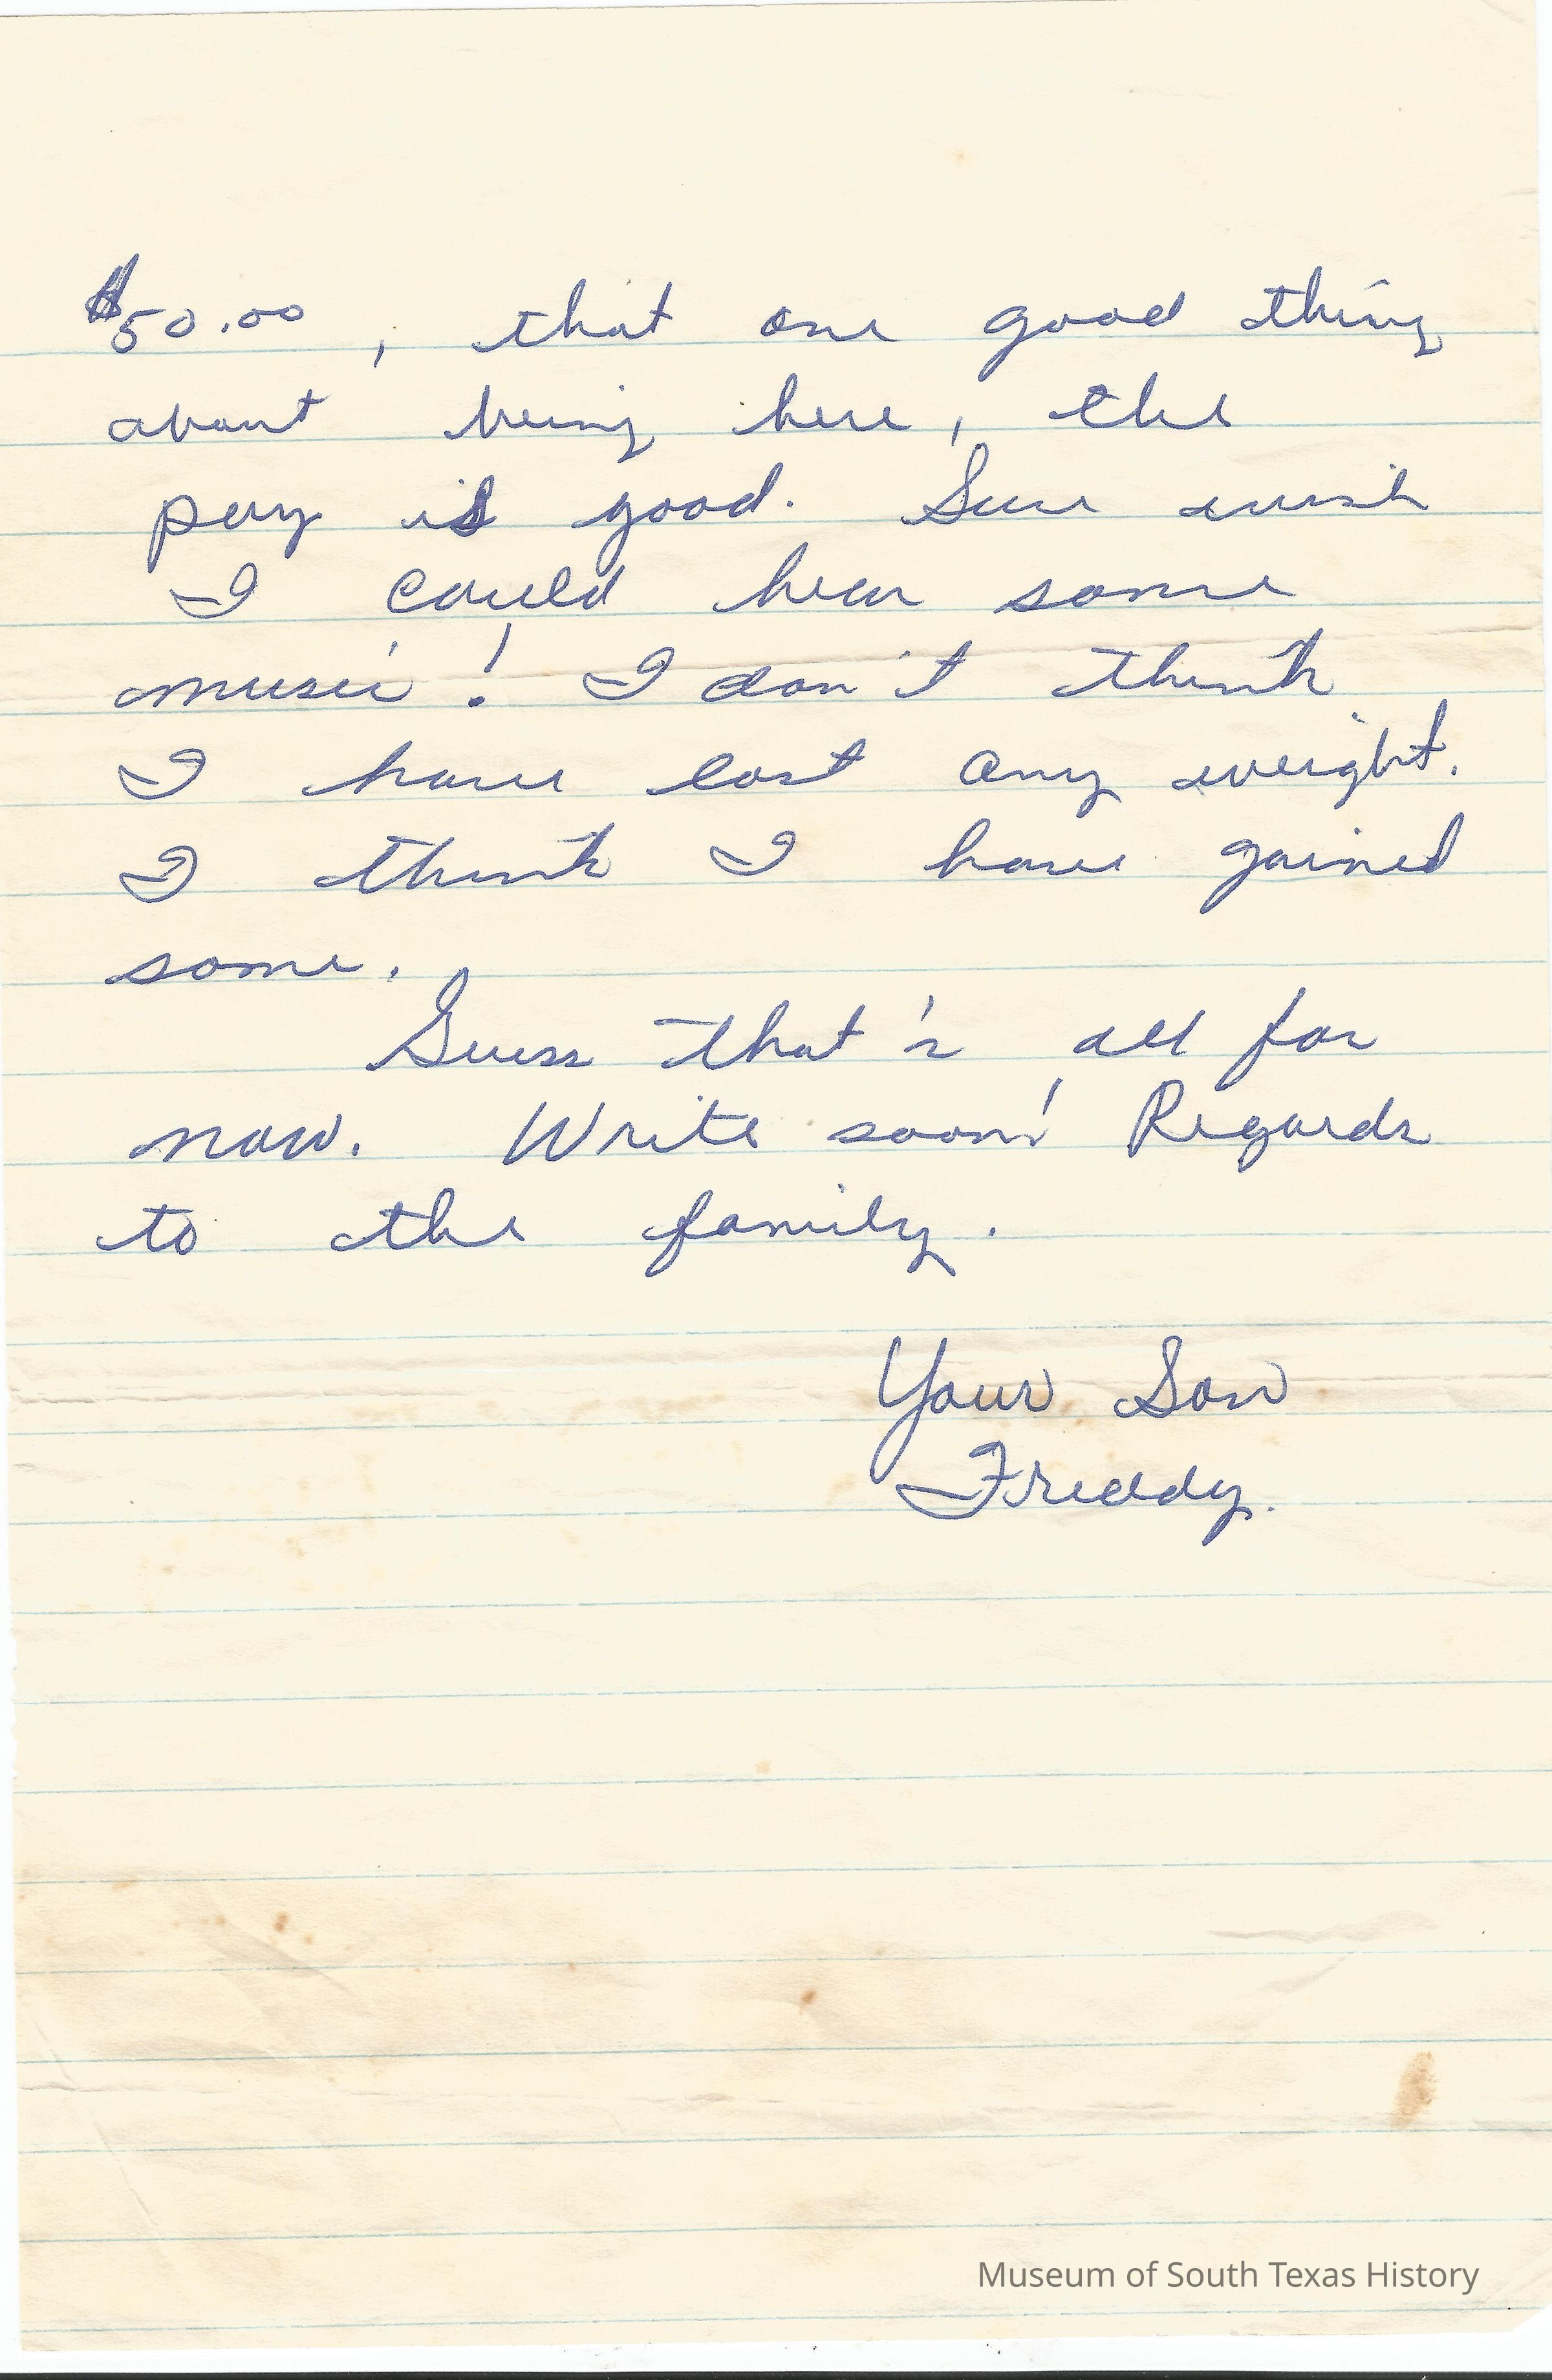 $50.00, that one good thing
about being here, the
pay is good. Sure wish
I could hear some
music! I don't think
I have lost any weight.
I think I have gained
some.
Guess that's all for
now. Write soon! Regards
to the family.
Your Son
Freddy.
Museum of South Texas History